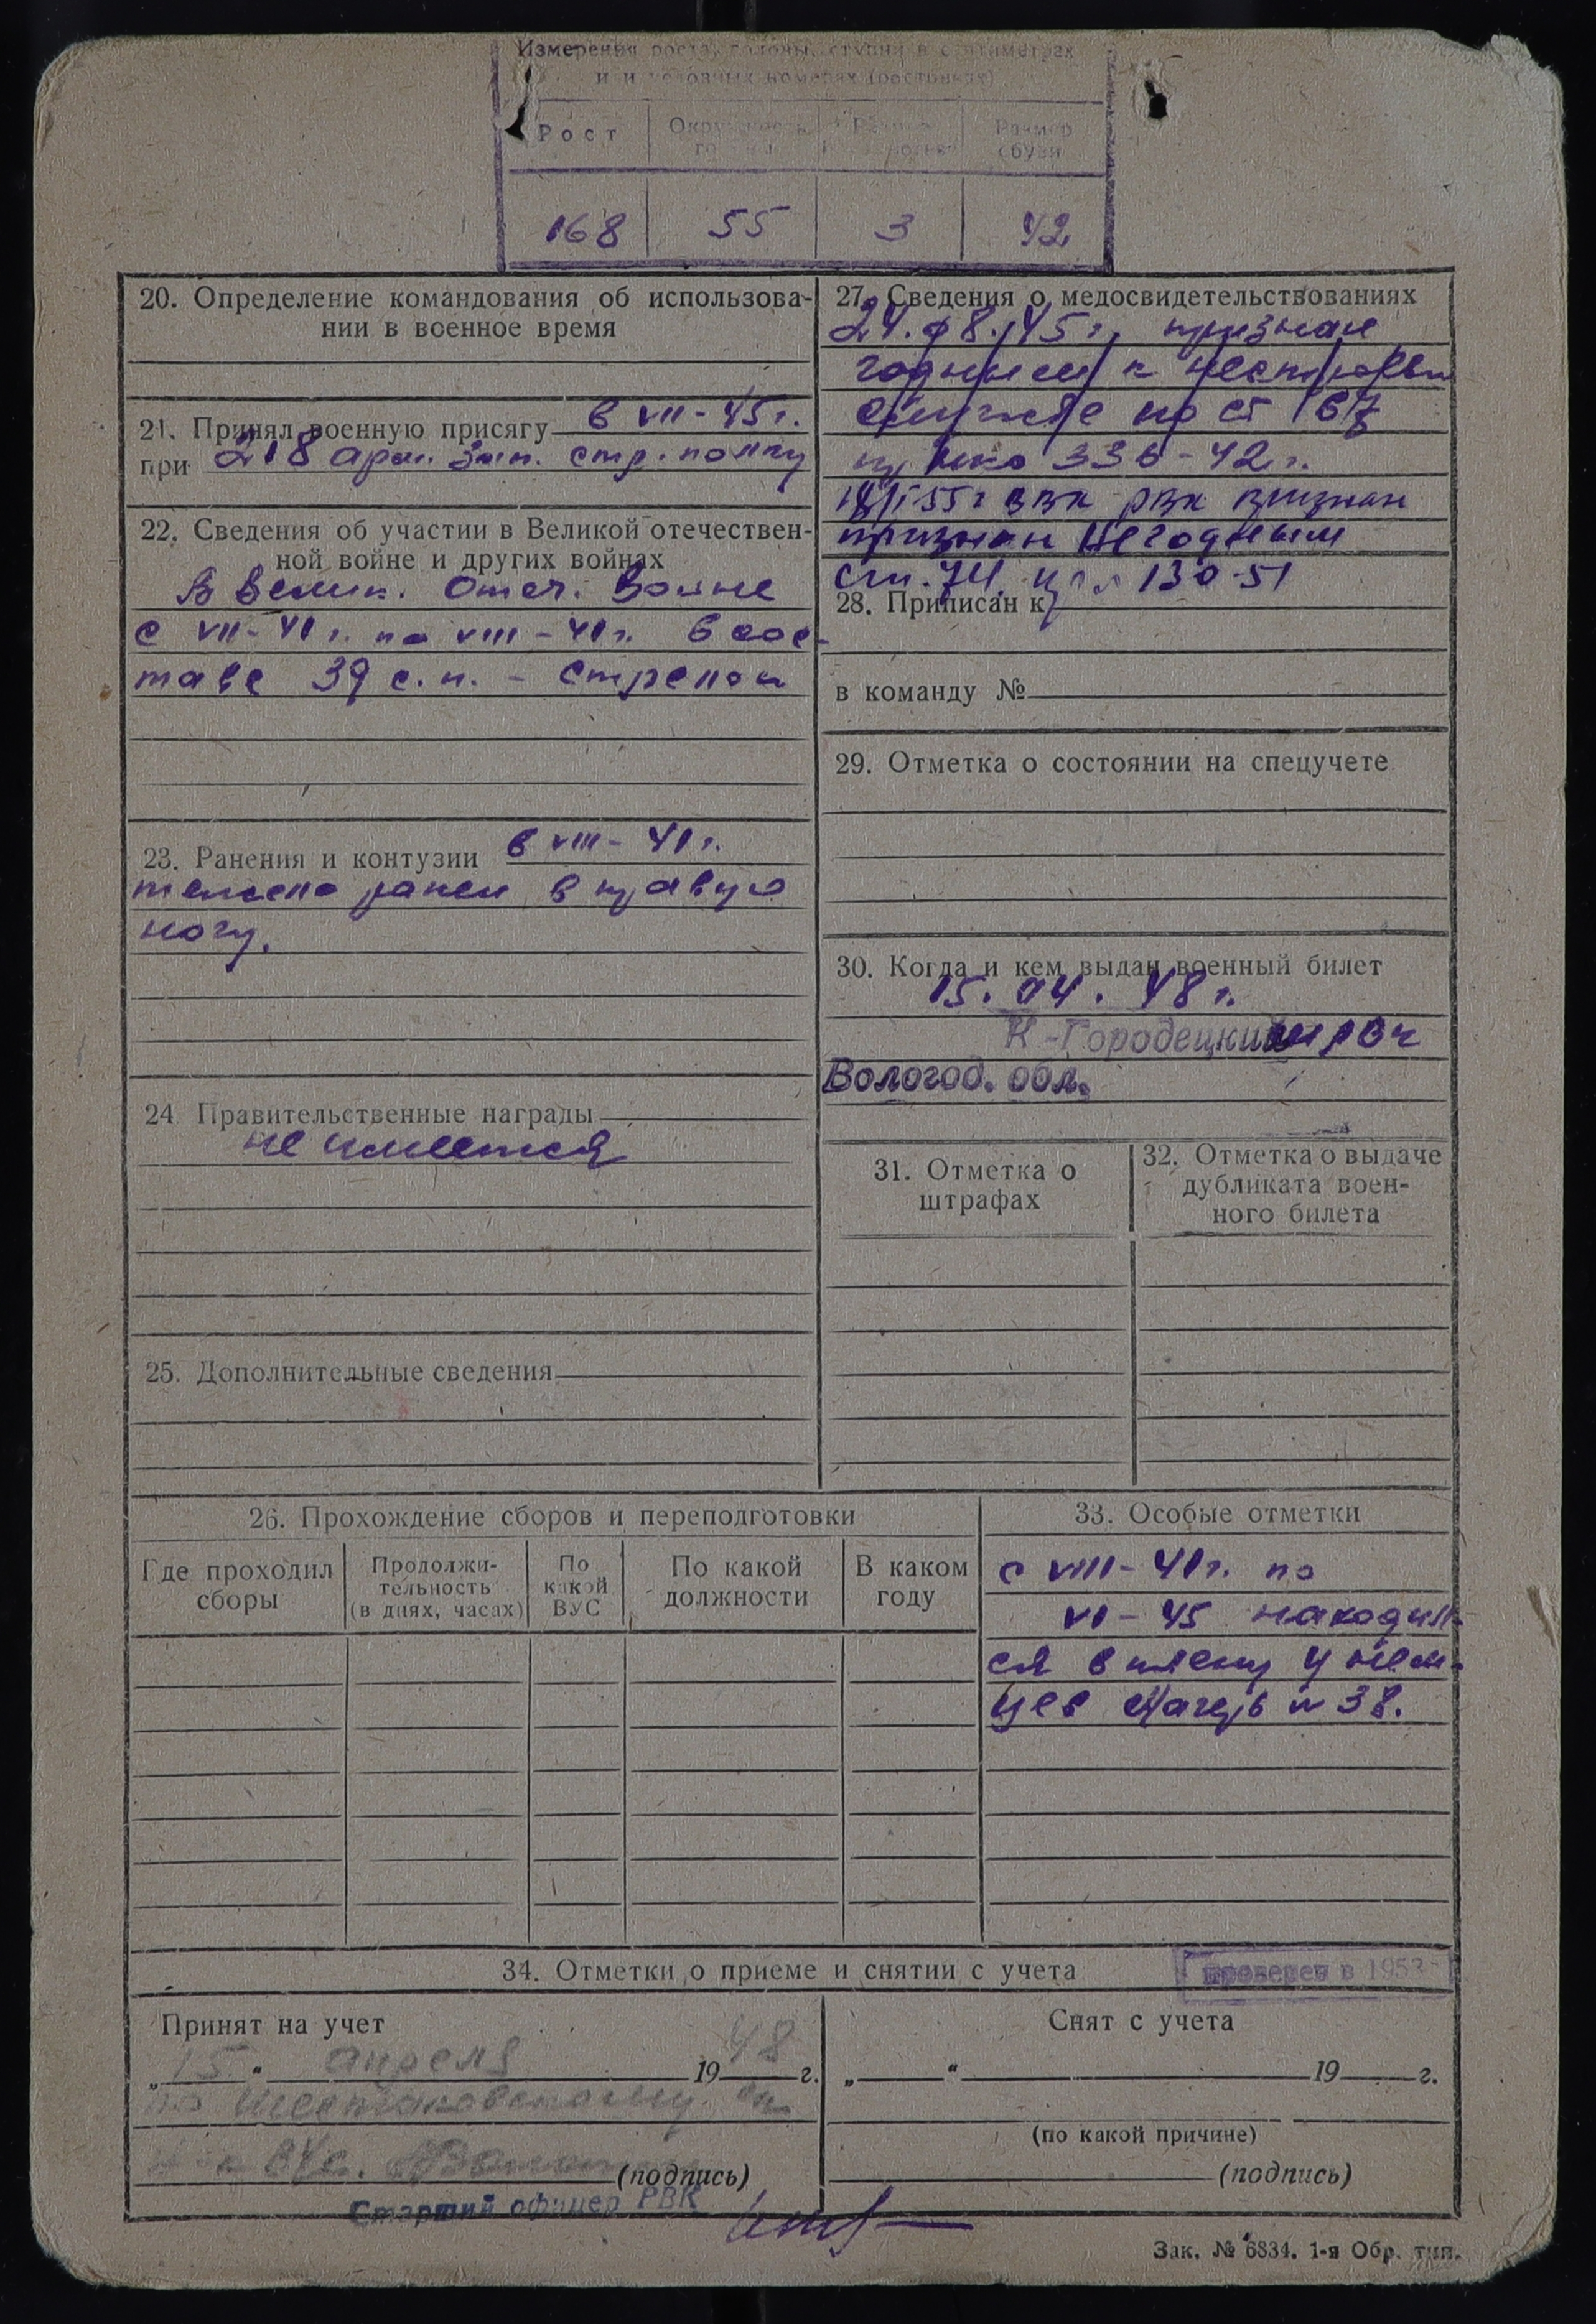 Измерения роста, головы, ступни в сантиметрах
Рост
Размер обуви
168 55 3 42
20. Определение командования об использова-
нии в военное время
21. Принял военную присягу в VII-45г.
при 218 арм. зап. стр. полку
22. Сведения об участии в Великой отечествен-
ной войне и других войнах
В велик. Отеч. войне
с VII-41г. по VIII-41г. в сос-
таве 39 с.п. - стрелок
23. Ранения и контузии в VIII-41г.
тяжело ранен в правую
ногу.
24. Правительственные награды
не имеется
25. Дополнительные сведения
27. Сведения о медосвидетельствованиях
24.08.45г. признан
годным к нестроевой
службе по ст
336-42г.
55г ВВК РВК признан
признан Негодным
ст. 74 130-51
28. Приписан к
в команду №
29. Отметка о состоянии на спецучете
30. Когда и кем выдан военный билет
15.04.48г.
К-Городецким РВК
Вологод. обл.
31. Отметка о
штрафах
32. Отметка о выдаче
дубликата воен-
ного билета
26. Прохождение сборов и переподготовки
Где проходил
сборы
Продолжи-
тельность
(в днях, часах)
По
какой
ВУС
По какой
должности
В каком
году
33. Особые отметки
с VIII-41г. по
VI-45 находил-
ся в плену у нем-
цев Лагерь №38.
34. Отметки о приеме и снятии с учета
проверен в 195
Принят на учет
„15“ апреля 1948 г.
по
(подпись)
Старший офицер РВК
Снят с учета
„ “ 19 г.
(по какой причине)
(подпись)
Зак. № 6834. 1-я Обр. тип.